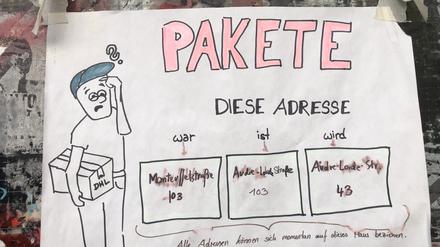 ??
PAKETE
DIESE ADRESSE
war ist wird
Audre-Lorde-Straße Audre-Lorde-Str.
103 103 43
DHL
Alle Adressen können sich momentan auf dieses Haus beziehen.